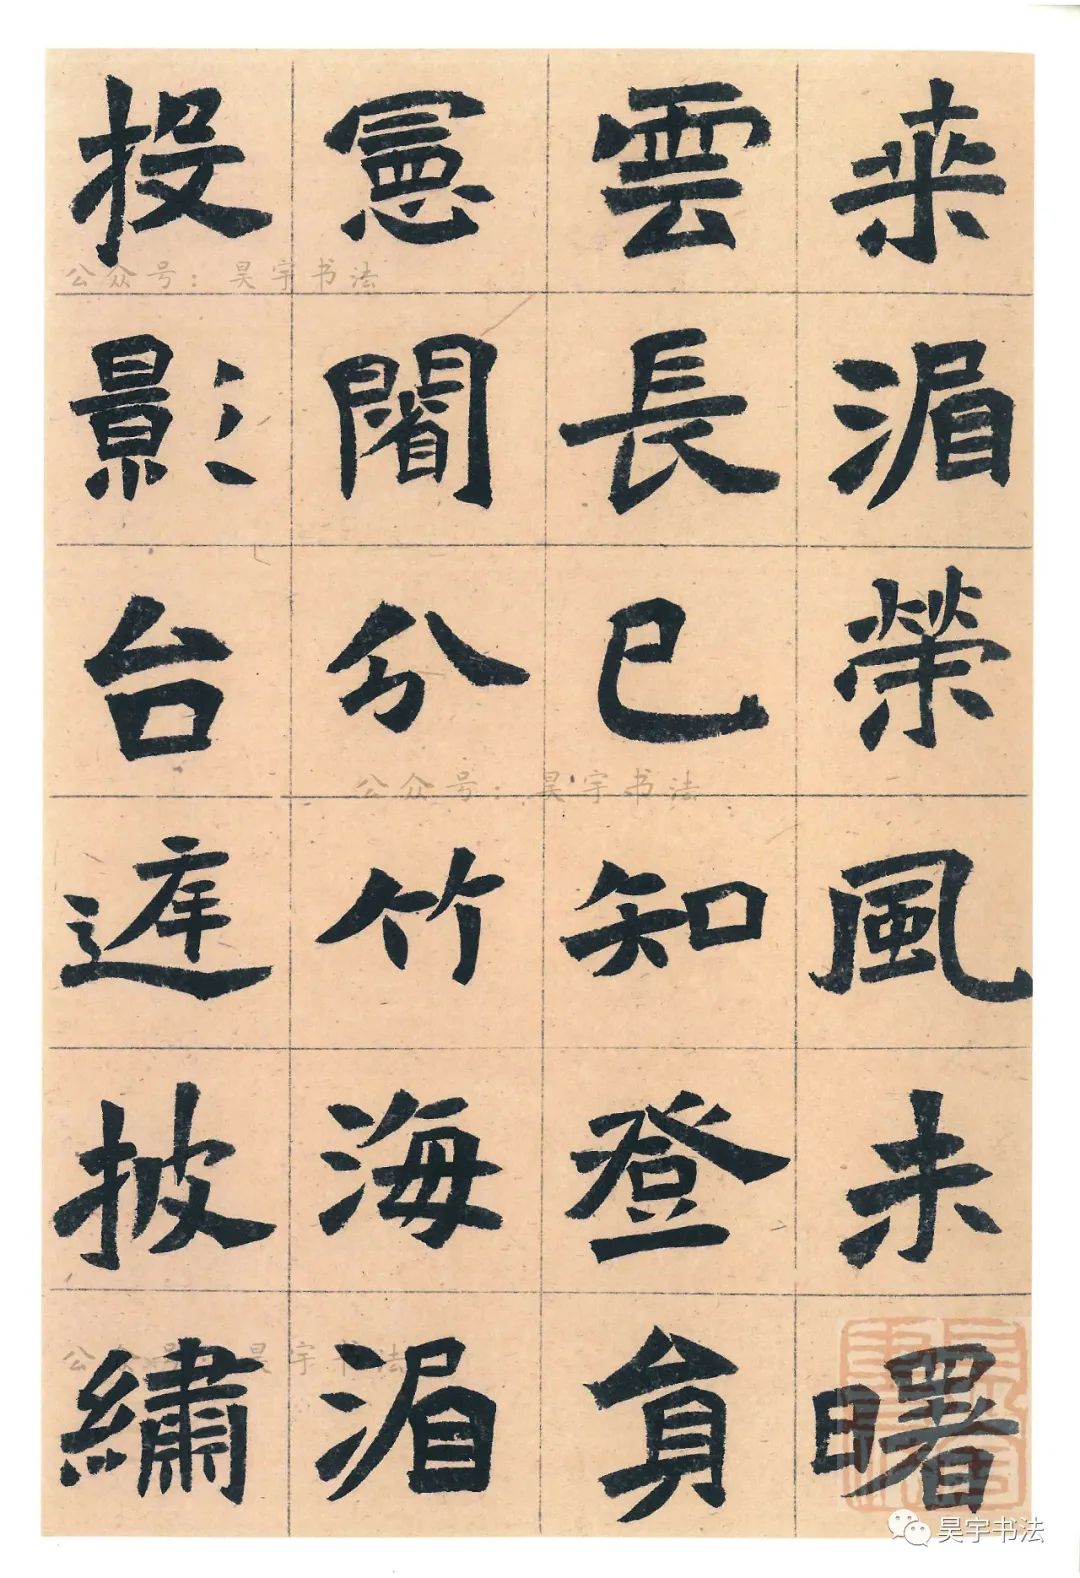 桒湄榮風未曙
雲長已知登貟
憲闍分竹海湄
投影台遲披繡
公众号：昊宇书法
公众号：昊宇书法
公众号：昊宇书法
昊宇书法